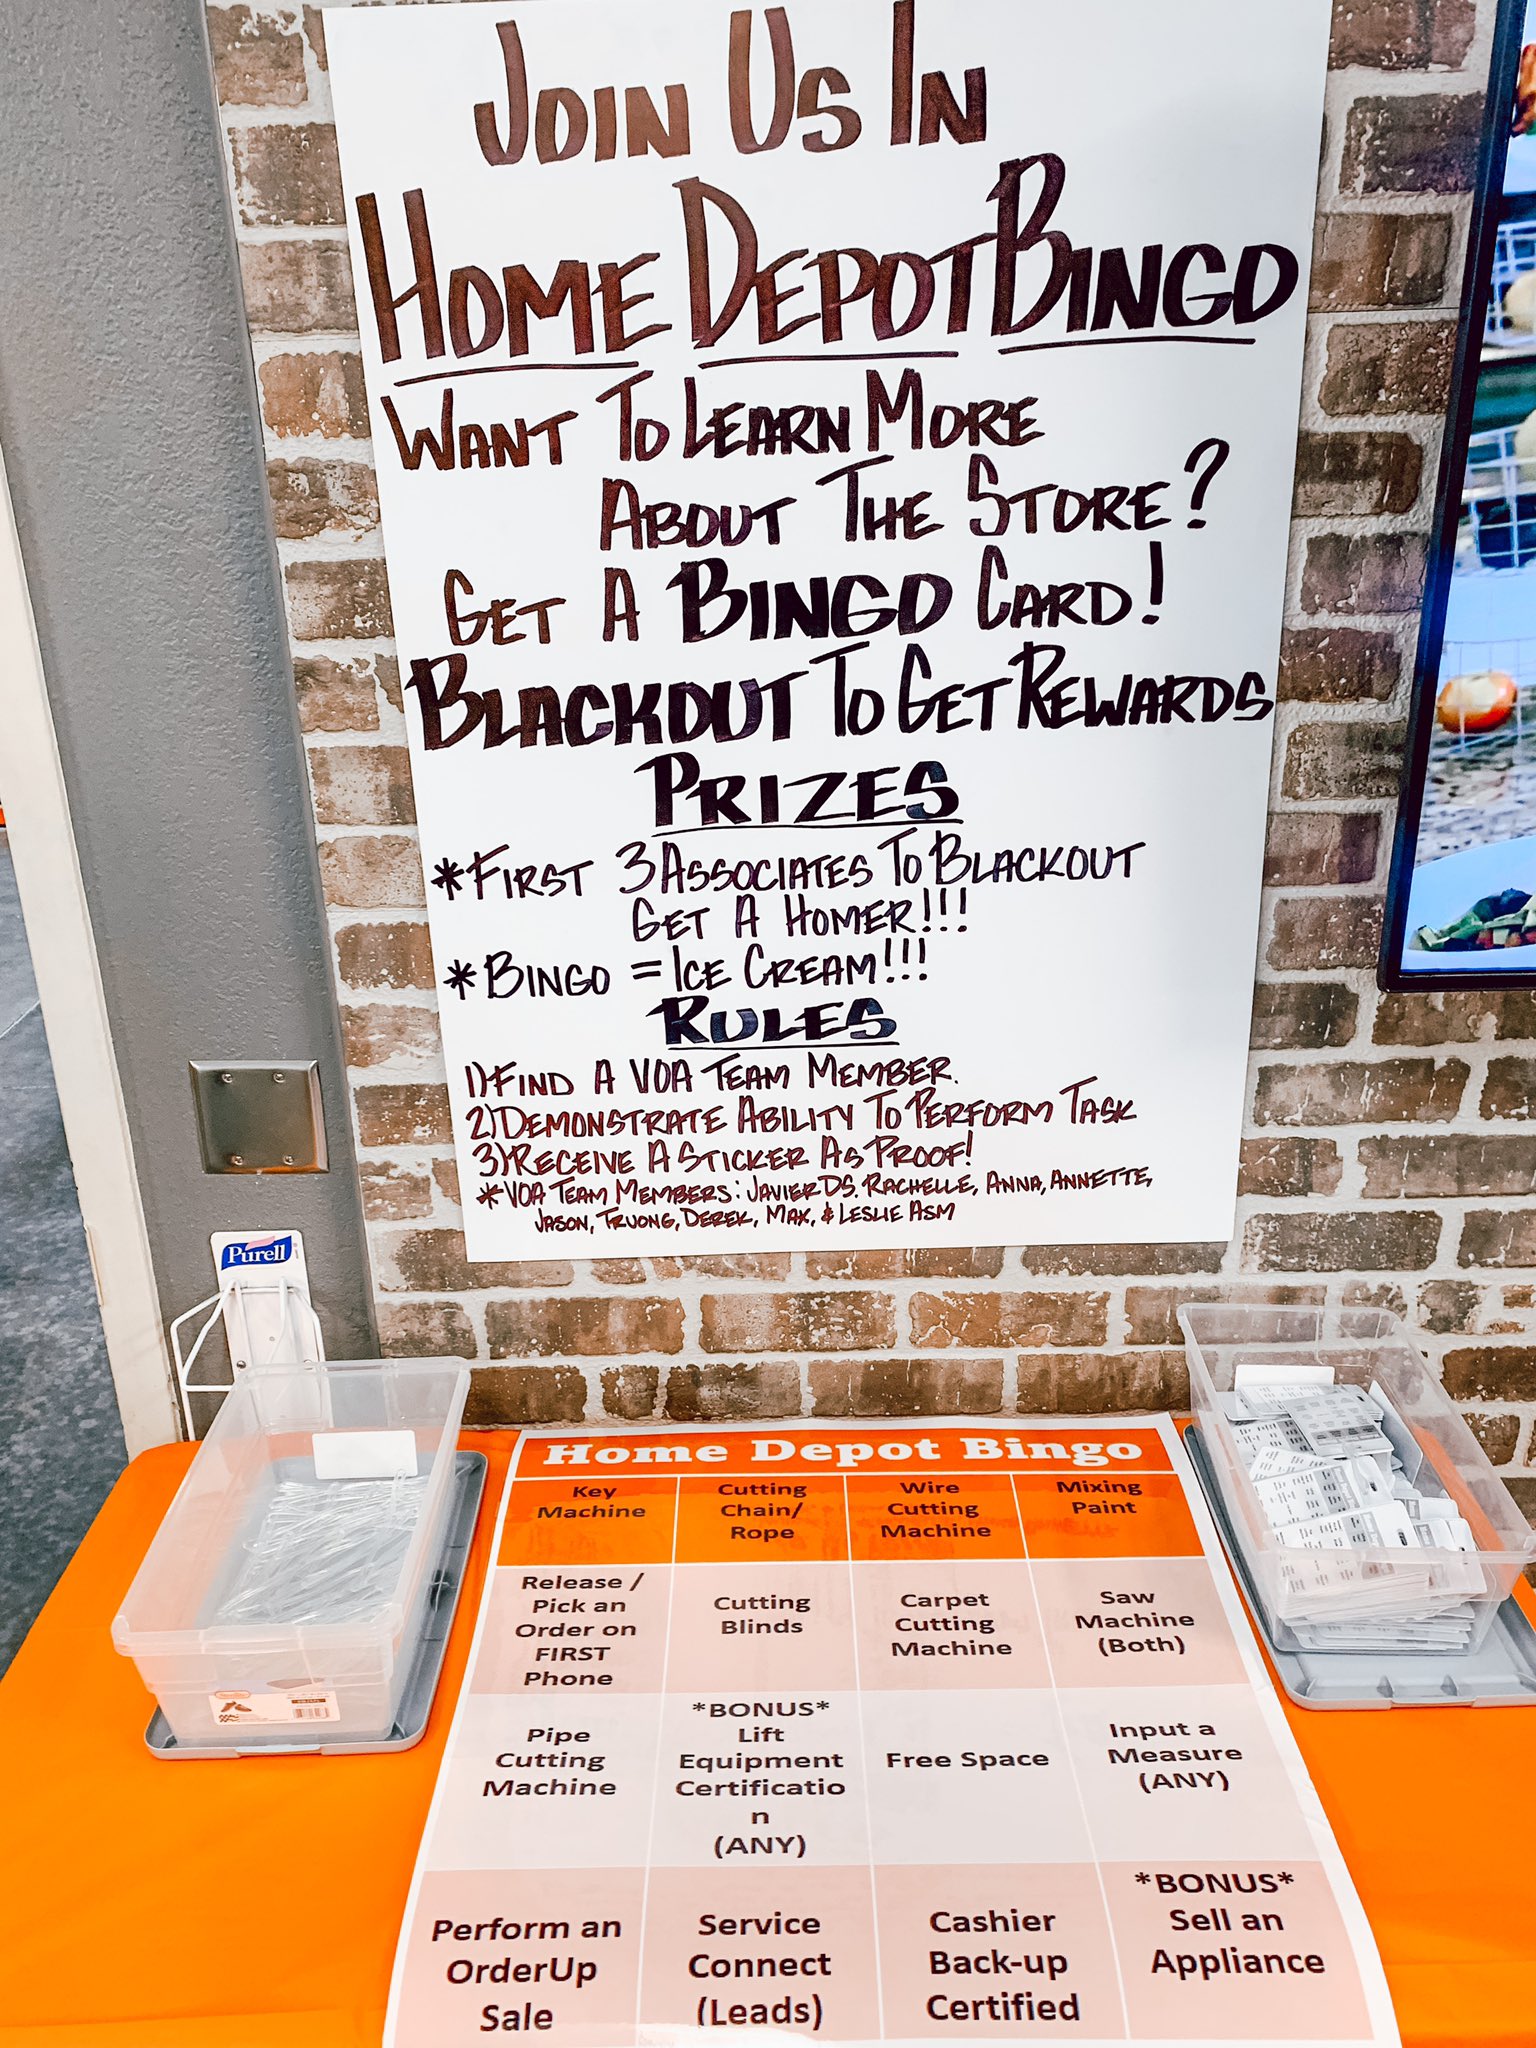 JOIN US IN
HOME DEPOT BINGO
WANT TO LEARN MORE
ABOUT THE STORE?
GET A BINGO CARD!
BLACKOUT TO GET REWARDS
PRIZES
*FIRST 3 ASSOCIATES TO BLACKOUT
GET A HOMER!!!
*BINGO = ICE CREAM!!!
RULES
1) FIND A VOA TEAM MEMBER.
2) DEMONSTRATE ABILITY TO PERFORM TASK
3) RECEIVE A STICKER AS PROOF!
*VOA TEAM MEMBERS: JAVIER DS. RACHELLE, ANNA, ANNETTE,
JASON, TRUONG, DEREK, MAX, & LESLIE ASM
Purell
Home Depot Bingo
Key
Machine
Cutting
Chain/
Rope
Wire
Cutting
Machine
Mixing
Paint
Release /
Pick an
Order on
FIRST
Phone
Cutting
Blinds
Carpet
Cutting
Machine
Saw
Machine
(Both)
Pipe
Cutting
Machine
*BONUS*
Lift
Equipment
Certificatio
n
(ANY)
Free Space
Input a
Measure
(ANY)
Perform an
OrderUp
Sale
Service
Connect
(Leads)
Cashier
Back-up
Certified
*BONUS*
Sell an
Appliance